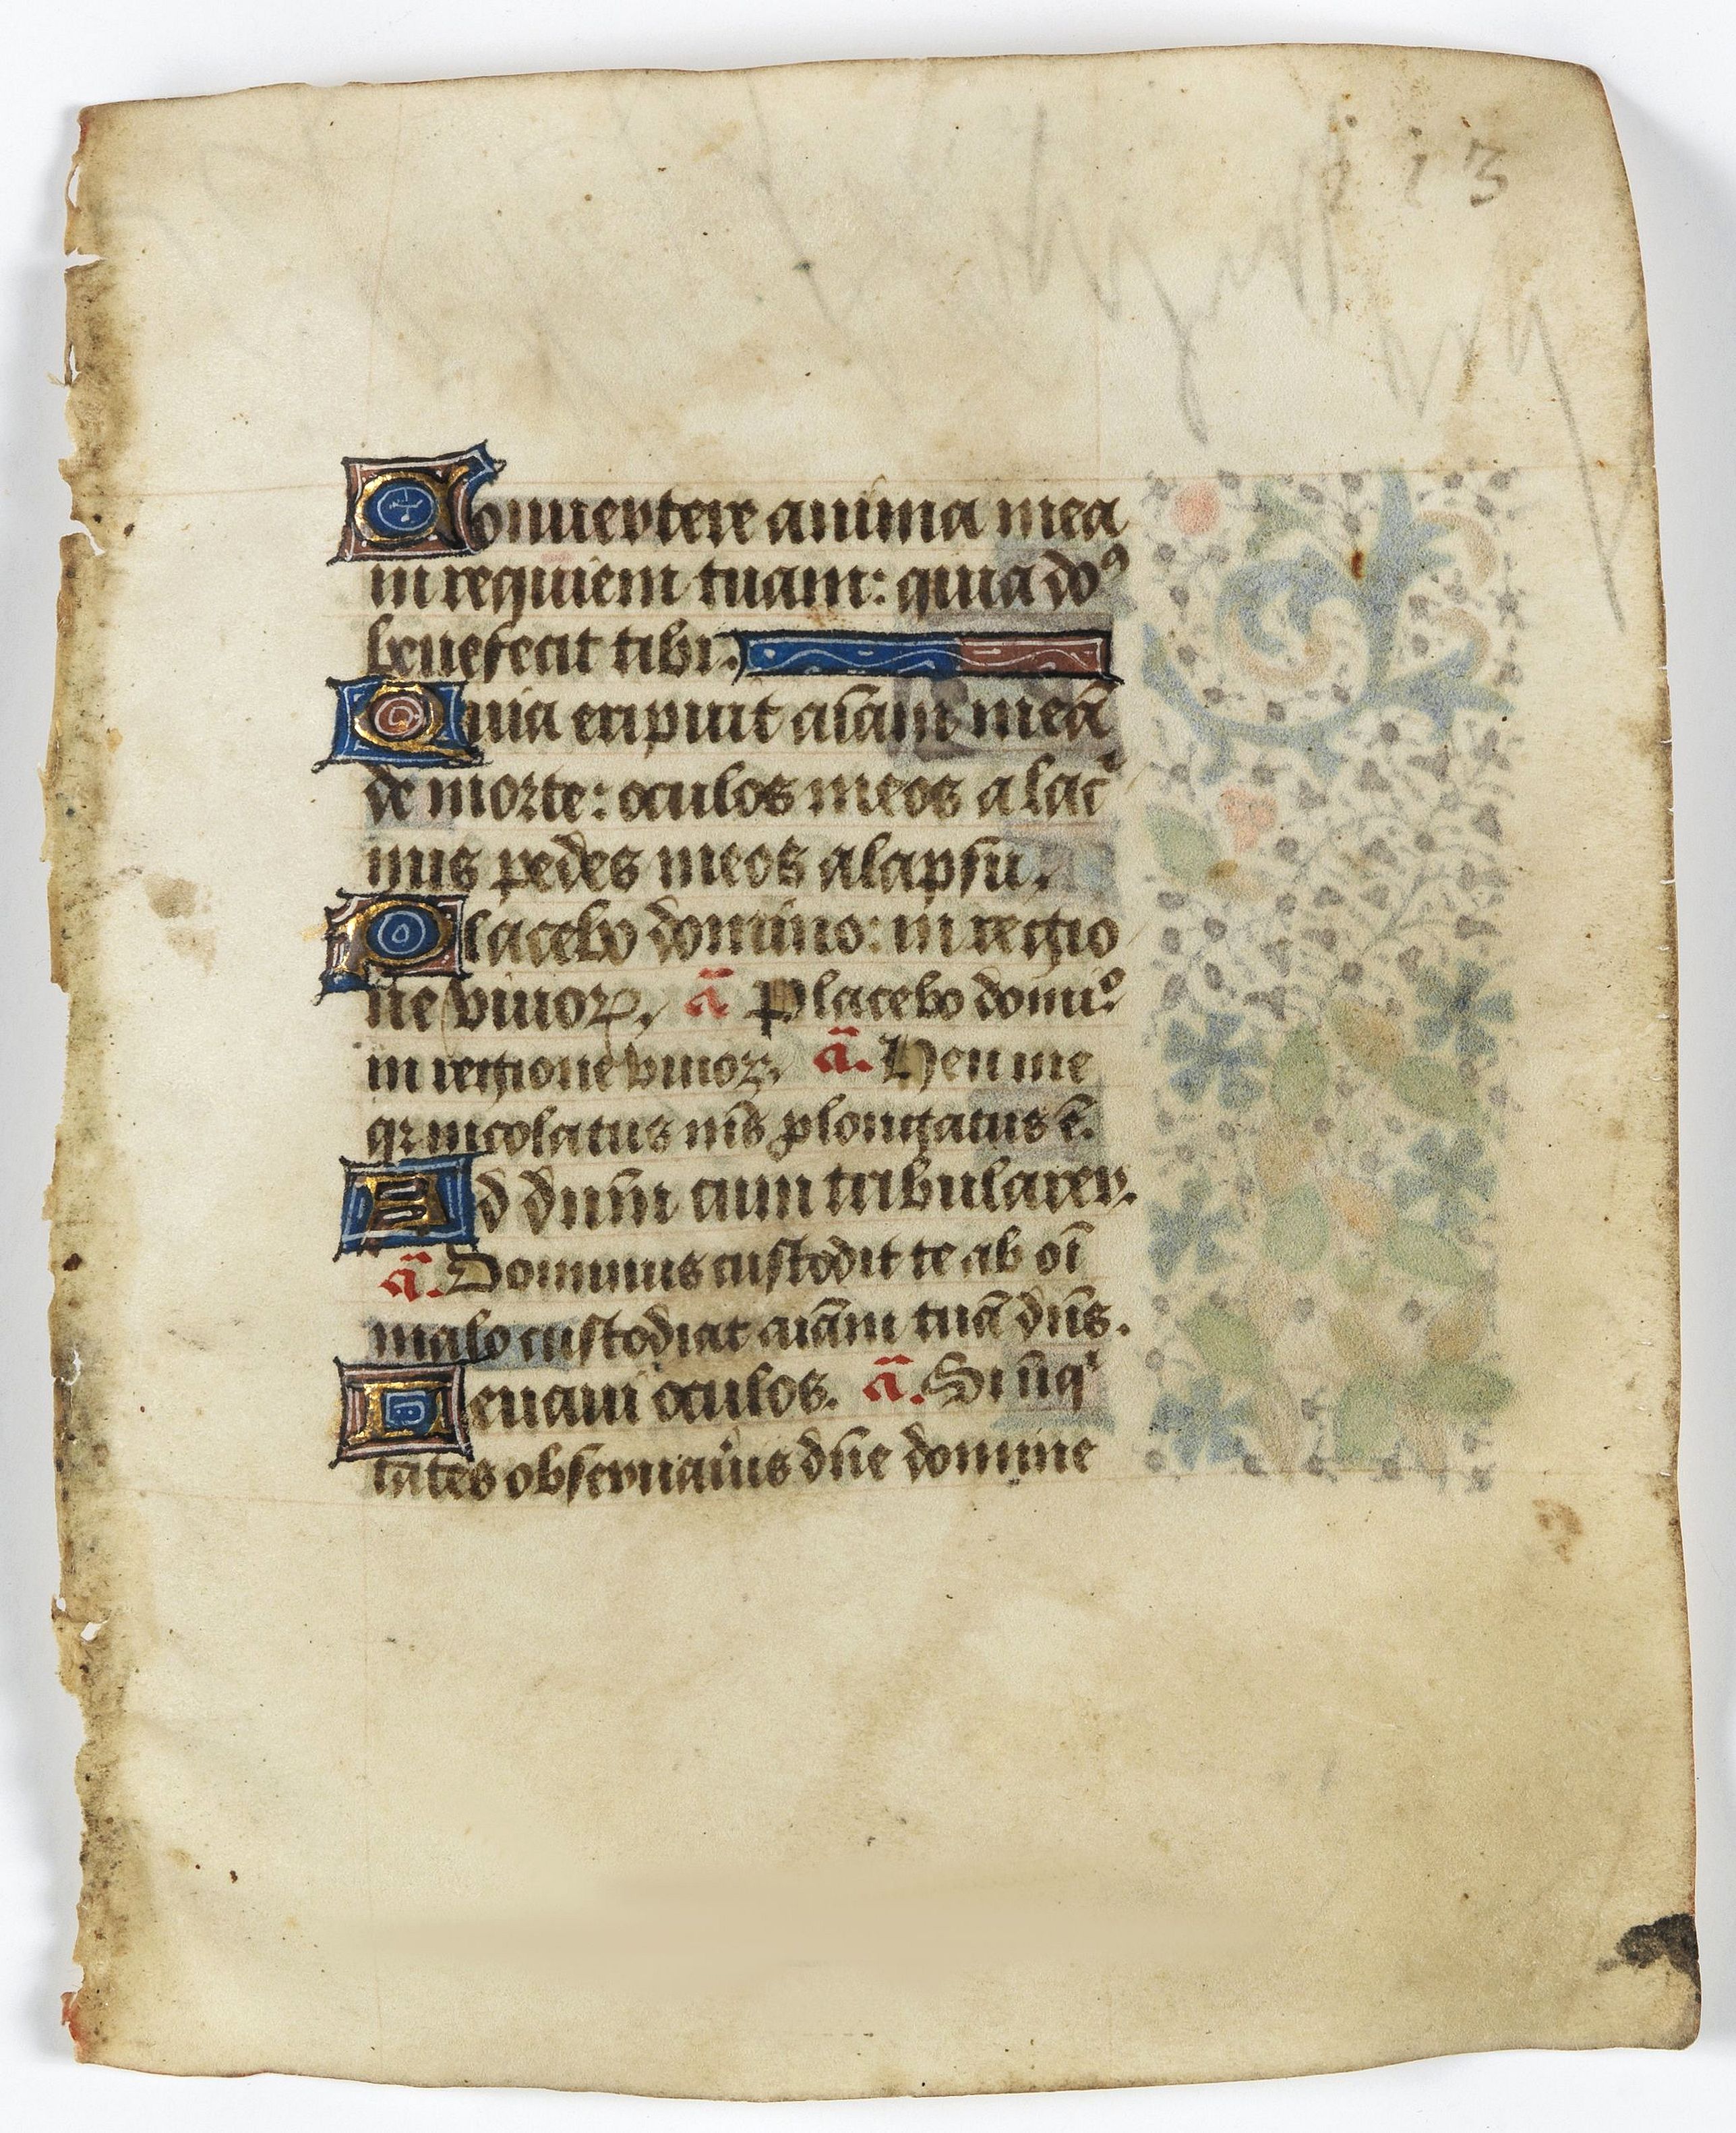 113
Conuertere anima mea
in requiem tuam: quia do⁹
benefecit tibi.
Quia eripuit aīam meā
de morte: oculos meos a lac͛
mis pedes meos a lapsū.
Placebo domino: in regio
ne viuoꝝ. a᷑ Placebo domīᵒ
in regione viuoꝝ. a᷑. Heu me
qꝛ incolatus mēs ꝓlongatus ē.
Ad dnm̄ cum tribularer.
a᷑. Dominus custodit te ab oī
malo custodiat aīam tuā dn̄s.
Leuaui oculos. a᷑. Si īiqⁱ
tates obseruaūis dn̄e domine